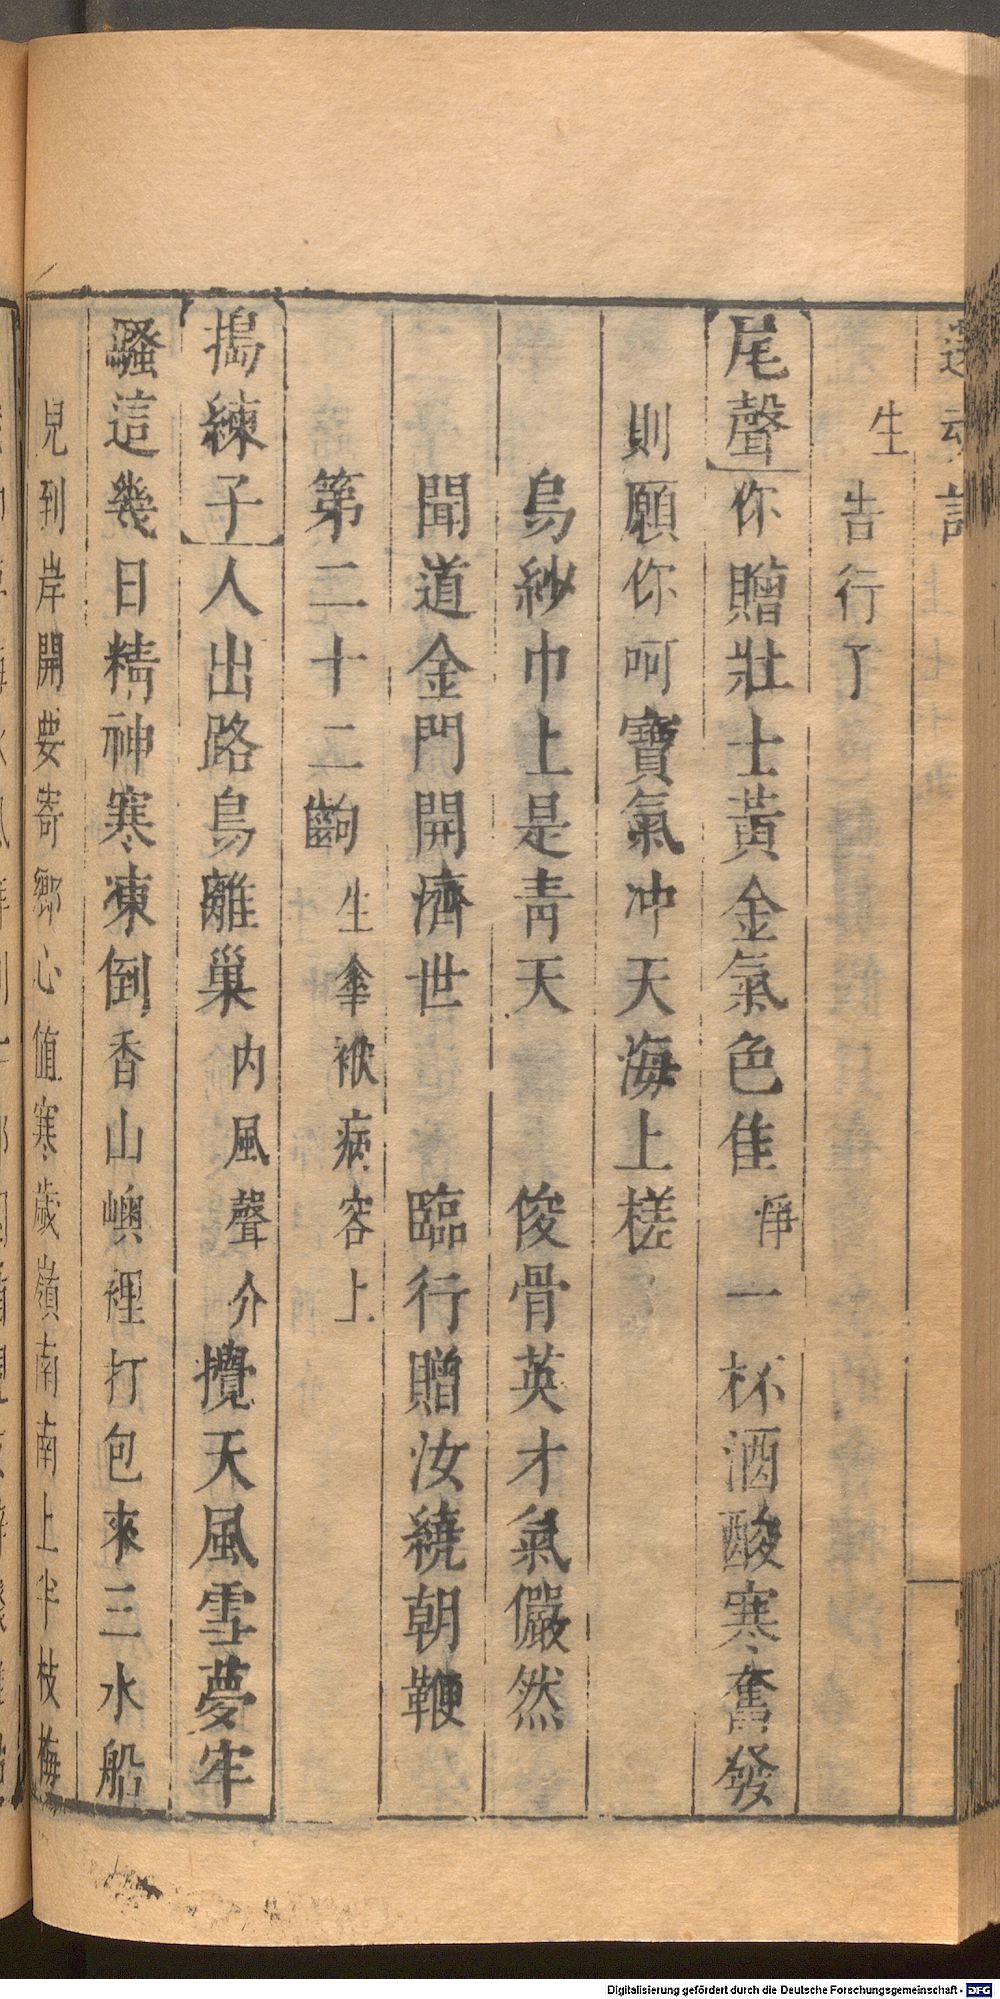 生告行了
尾聲你贈壯士黃金氣色佳淨一杯酒酸寒奮發
則願你呵寶氣冲天海上槎
烏紗巾上是青天 俊骨英才氣儼然
聞道金門開濟世 臨行贈汝繞朝鞭
第二十二齣 生傘袱病容上
搗練子人出路鳥離巢內風聲介攪天風雪夢牢
騷這幾日精神寒凍倒香山㠗裡打包來三水船
兒到岸開要寄鄉心值寒歲嶺南南上半枝梅
Digitalisierung gefördert durch die Deutsche Forschungsgemeinschaft - DFG